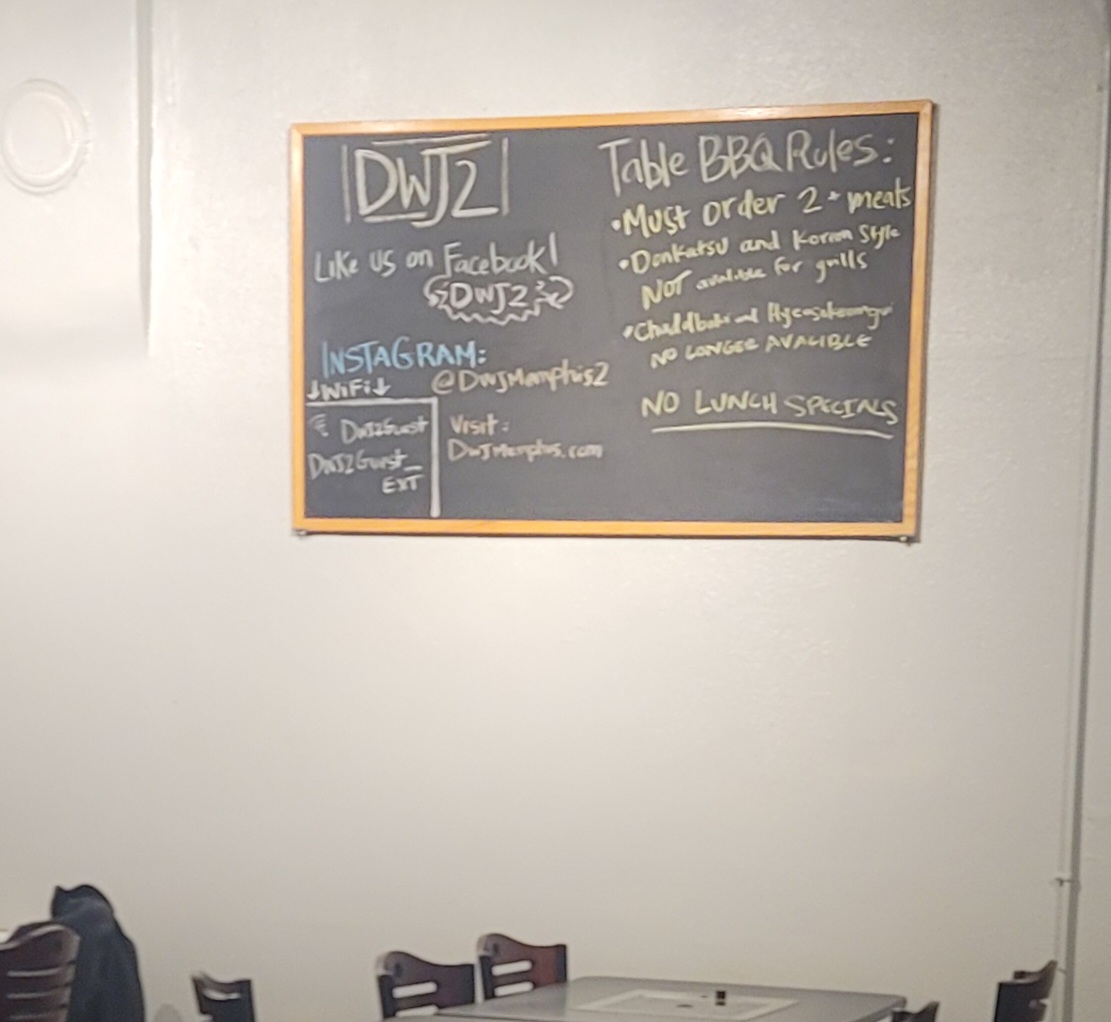 DWJ2
Like us on Facebook!
DWJ2
INSTAGRAM:
@DWJMemphis2
↓WiFi↓
DWJ2Guest
DWJ2Guest_
EXT
Visit:
DWJMemphis.com
Table BBQ Rules:
•Must order 2+ meats
•Donkatsu and Korean Style
NOT for grills
•Chaddboki and
NO LONGER AVALIBLE
NO LUNCH SPECIALS